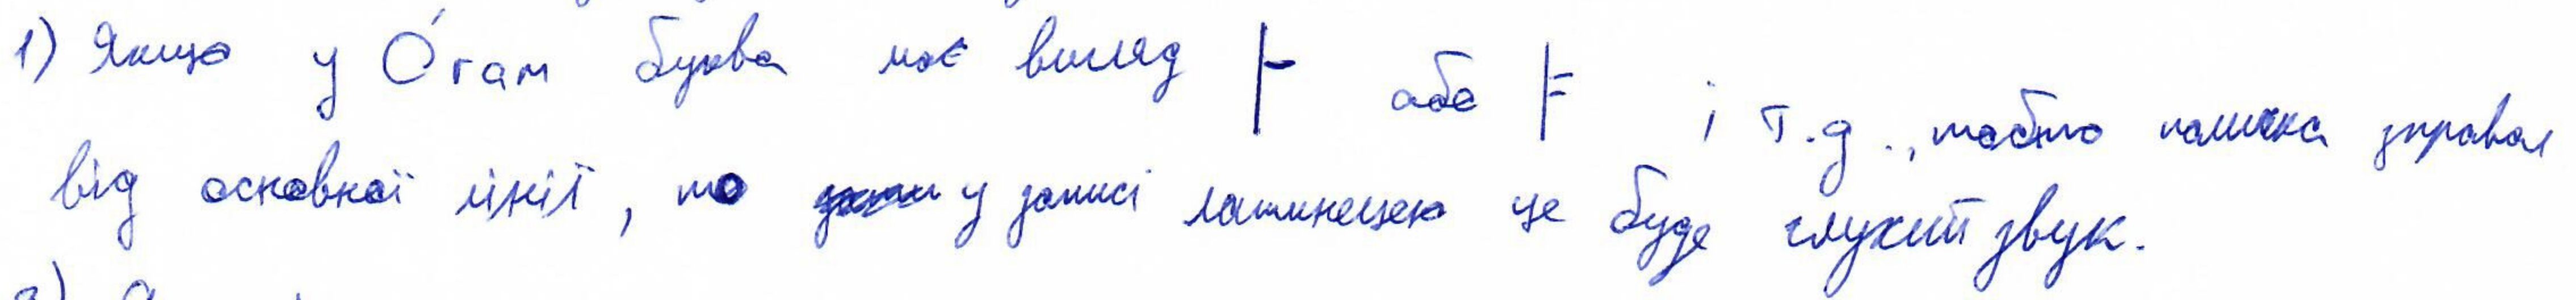 1) Якщо у О́гам буква має вигляд ꜔ або F і т.д., тобто паличка справа
від основної лінії, то у записі латиницею це буде глухий звук.